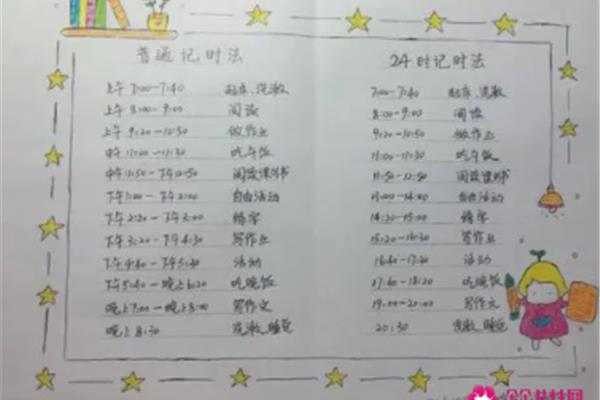 普通记时法
上午7:00-7:40 起床、洗漱
上午8:00-9:00 阅读
上午9:20-10:50 做作业
中午11:00-11:30 吃午饭
中午11:50-下午12:50 阅读课外书
下午1:00-下午2:00 自由活动
下午2:20-下午3:00 练字
下午3:20-下午4:30 写作业
下午4:40-下午5:30 活动
下午5:40-晚上6:20 吃晚饭
晚上7:00-晚上8:00 写作文
晚上8:30 洗漱、睡觉
24时记时法
7:00-7:40 起床、洗漱
8:00-9:00 阅读
9:20-10:50 做作业
11:00-11:30 吃午饭
11:50-12:50 阅读课外书
13:00-14:00 自由活动
14:20-15:00 练字
15:20-16:30 写作业
16:40-17:30 活动
17:40-18:20 吃晚饭
19:00-20:00 写作文
20:30 洗漱、睡觉